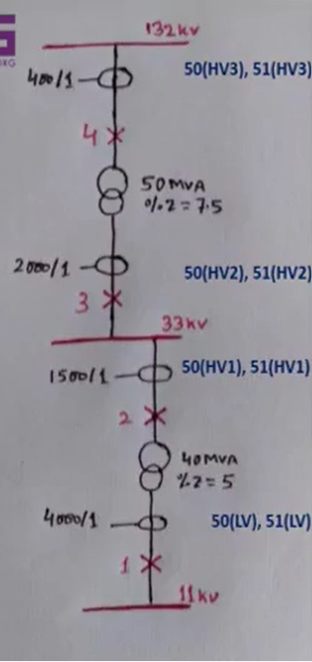 G
132kv
400/1
50(HV3), 51(HV3)
4
50MVA
%Z = 7.5
2000/1
50(HV2), 51(HV2)
3
33kv
1500/1
50(HV1), 51(HV1)
2
40MVA
%Z = 5
4000/1
50(LV), 51(LV)
1
11kv